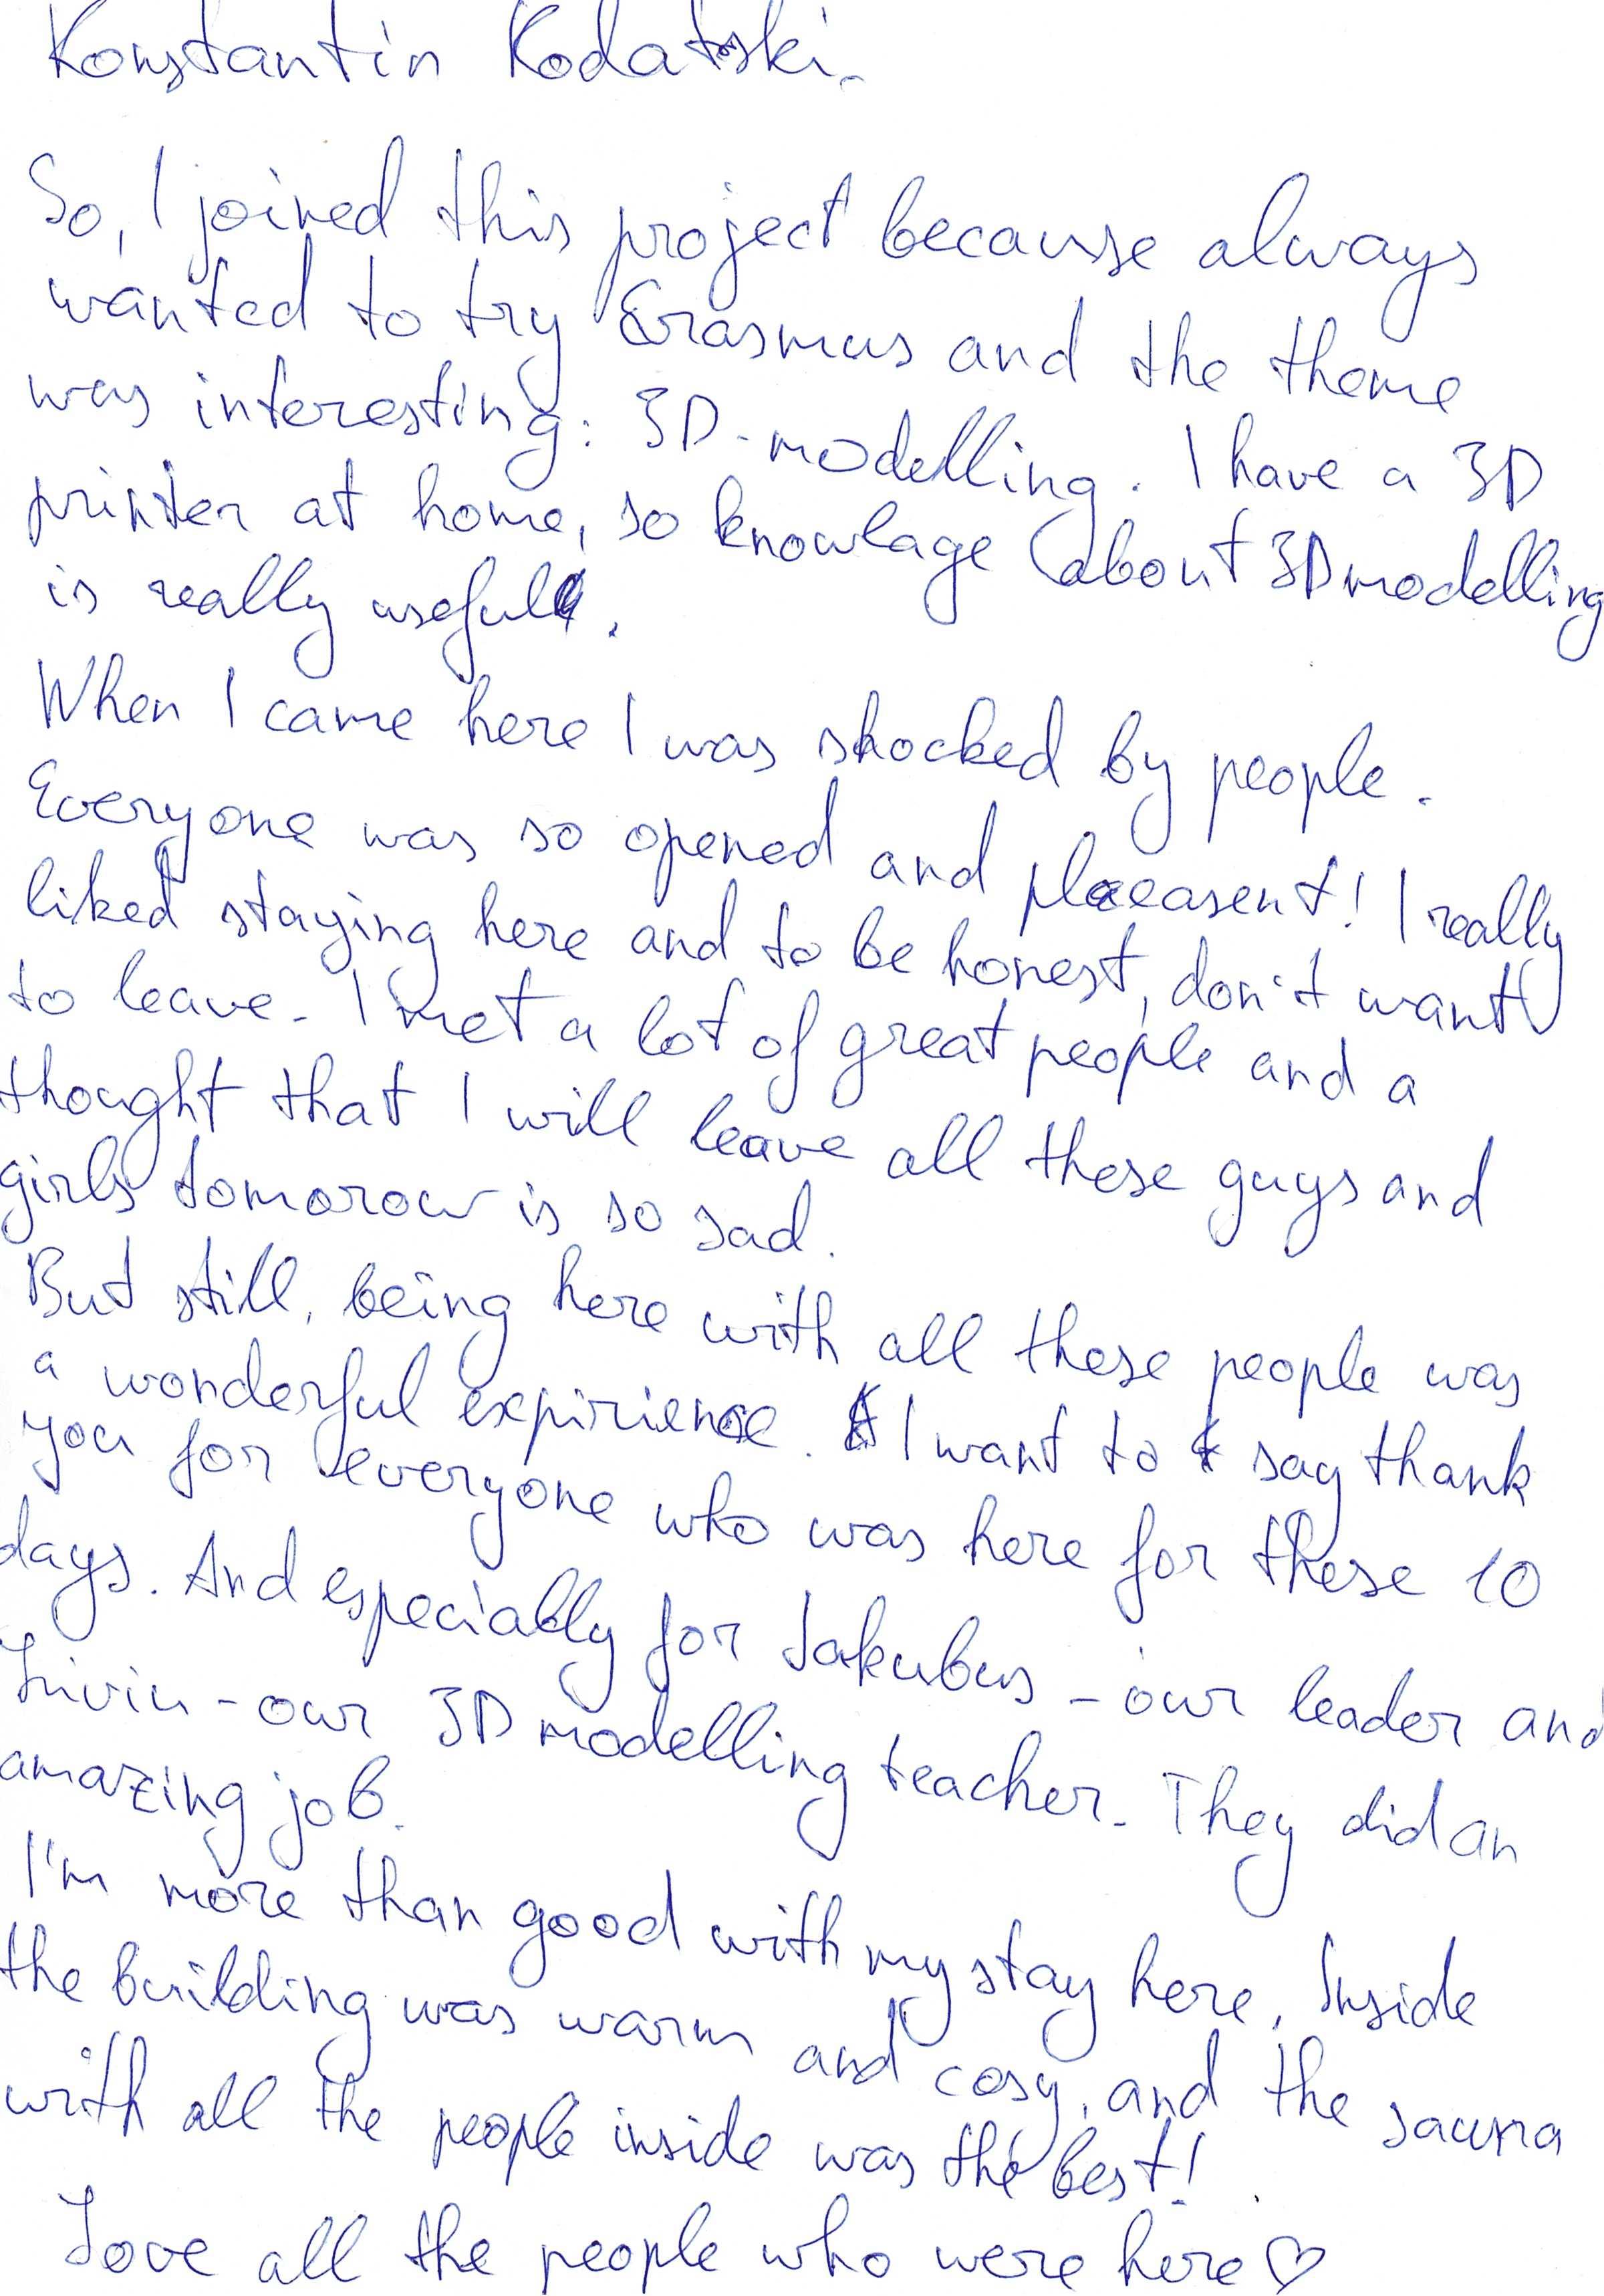 Konstantin Kodatski.
So, I joined this project because always
wanted to try Erasmus and the theme
was interesting: 3D-modelling. I have a 3D
printer at home, so knowlage about 3D modelling
is really useful.
When I came here I was shocked by people.
Everyone was so opened and pleasent! I really
liked staying here and to be honest, don't want
to leave. I met a lot of great people and a
thought that I will leave all these guys and
girls tomorow is so sad.
But still, being here with all these people was
a wonderful expirience. I want to say thank
you for everyone who was here for these 10
days. And especially for Jakubus - our leader and
Liviu - our 3D modelling teacher. They did an
amazing job.
I'm more than good with my stay here. Inside
the building was warm and cosy, and the sauna
with all the people inside was the best!
Love all the people who were here ♡